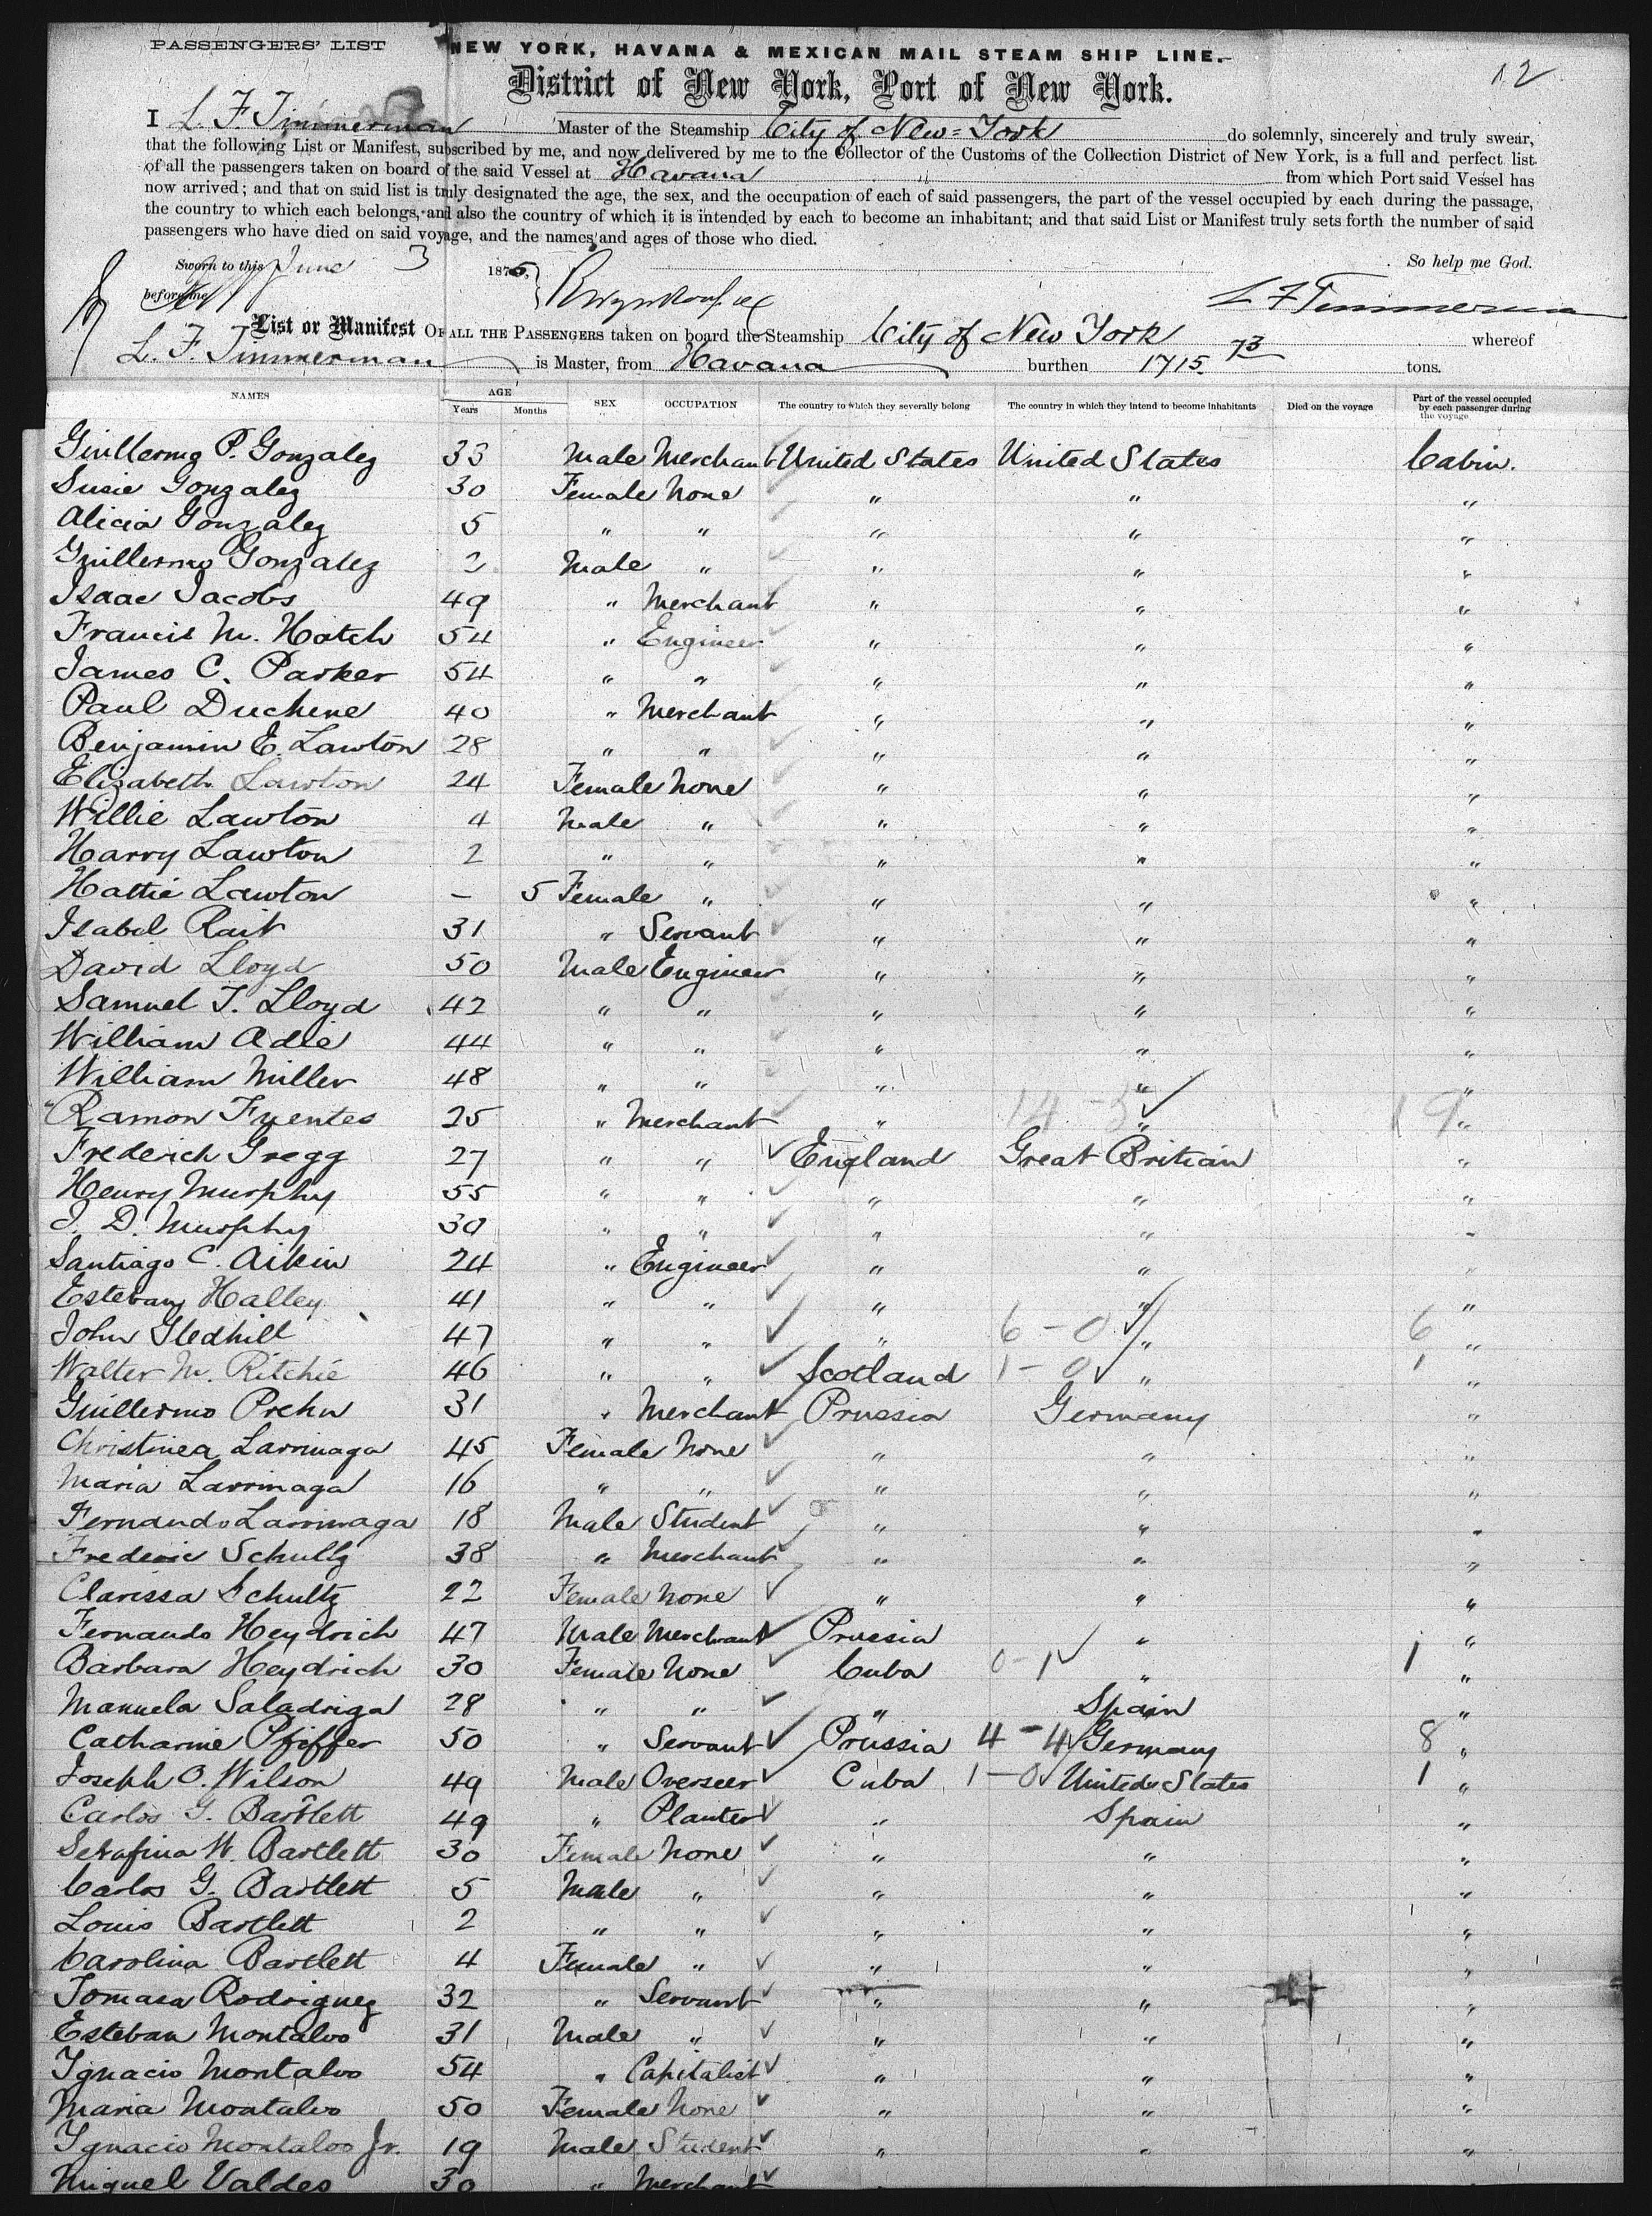 PASSENGERS' LIST
NEW YORK, HAVANA & MEXICAN MAIL STEAM SHIP LINE.
12
District of New York, Port of New York.
I L. F. Timmerman Master of the Steamship City of New=York do solemnly, sincerely and truly swear,
that the following List or Manifest, subscribed by me, and now delivered by me to the Collector of the Customs of the Collection District of New York, is a full and perfect list
of all the passengers taken on board of the said Vessel at Havana from which Port said Vessel has
now arrived; and that on said list is truly designated the age, the sex, and the occupation of each of said passengers, the part of the vessel occupied by each during the passage,
the country to which each belongs, and also the country of which it is intended by each to become an inhabitant; and that said List or Manifest truly sets forth the number of said
passengers who have died on said voyage, and the names and ages of those who died.
Sworn to this June 3 187 So help me God.
before me L F Timmerman
List or Manifest OF ALL THE PASSENGERS taken on board the Steamship City of New York whereof
L. F. Timmerman is Master, from Havana burthen 1715 73 tons.
NAMES AGE Years Months SEX OCCUPATION The country to which they severally belong The country in which they intend to become inhabitants Died on the voyage Part of the vessel occupied by each passenger during the voyage
Guillermo P. Gonzalez 33 Male Merchant United States United States Cabin.
Susie Gonzalez 30 Female None " " "
Alicia Gonzalez 5 " " " " "
Guillermo Gonzalez 2 Male " " " "
Isaac Jacobs 49 " Merchant " " "
Francis M. Hatch 54 " Engineer " " "
James C. Parker 54 " " " " "
Paul Duchene 40 " Merchant " " "
Benjamin E. Lawton 28 " " " " "
Elizabeth Lawton 24 Female None " " "
Willie Lawton 4 Male " " " "
Harry Lawton 2 " " " " "
Hattie Lawton – 5 Female " " " "
Isabel Rait 31 " Servant " " "
David Lloyd 50 Male Engineer " " "
Samuel T. Lloyd 42 " " " " "
William Adie 44 " " " " "
William Miller 48 " " " " "
Ramon Fuentes 25 " Merchant " 14-5 " 19 "
Frederich Gregg 27 " " England Great Britian "
Henry Murphy 55 " " " " "
J. D. Murphy 30 " " " " "
Santiago C. Aikin 24 " Engineer " " "
Estevan Halley 41 " " " " "
John Gledhill 47 " " " 6-0 " 6 "
Walter M. Ritchie 46 " " Scotland 1-0 " 1 "
Guillermo Prehn 31 " Merchant Prussia Germany "
Christinea Larrinaga 45 Female None " " "
Maria Larrinaga 16 " " " " "
Fernando Larrinaga 18 Male Student " " "
Frederic Schultz 38 " Merchant " " "
Clarissa Schultz 22 Female None " " "
Fernando Heydrich 47 Male Merchant Prussia " "
Barbara Heydrich 30 Female None Cuba 0-1 " 1 "
Manuela Saladriga 28 " " " Spain "
Catharine Pfiffer 50 " Servant Prussia 4-4 Germany 8 "
Joseph O. Wilson 49 Male Overseer Cuba 1-0 United States 1 "
Carlos G. Bartlett 49 " Planter " Spain "
Serafina W. Bartlett 30 Female None " " "
Carlos G. Bartlett 5 Male " " " "
Louis Bartlett 2 " " " " "
Carolina Bartlett 4 Female " " " "
Tomasa Rodriguez 32 " Servant " " "
Esteban Montalvo 31 Male " " " "
Ignacio Montalvo 54 " Capitalist " " "
Maria Montalvo 50 Female None " " "
Ignacio Montalvo Jr. 19 Male Student " " "
Miguel Valdes 30 " Merchant